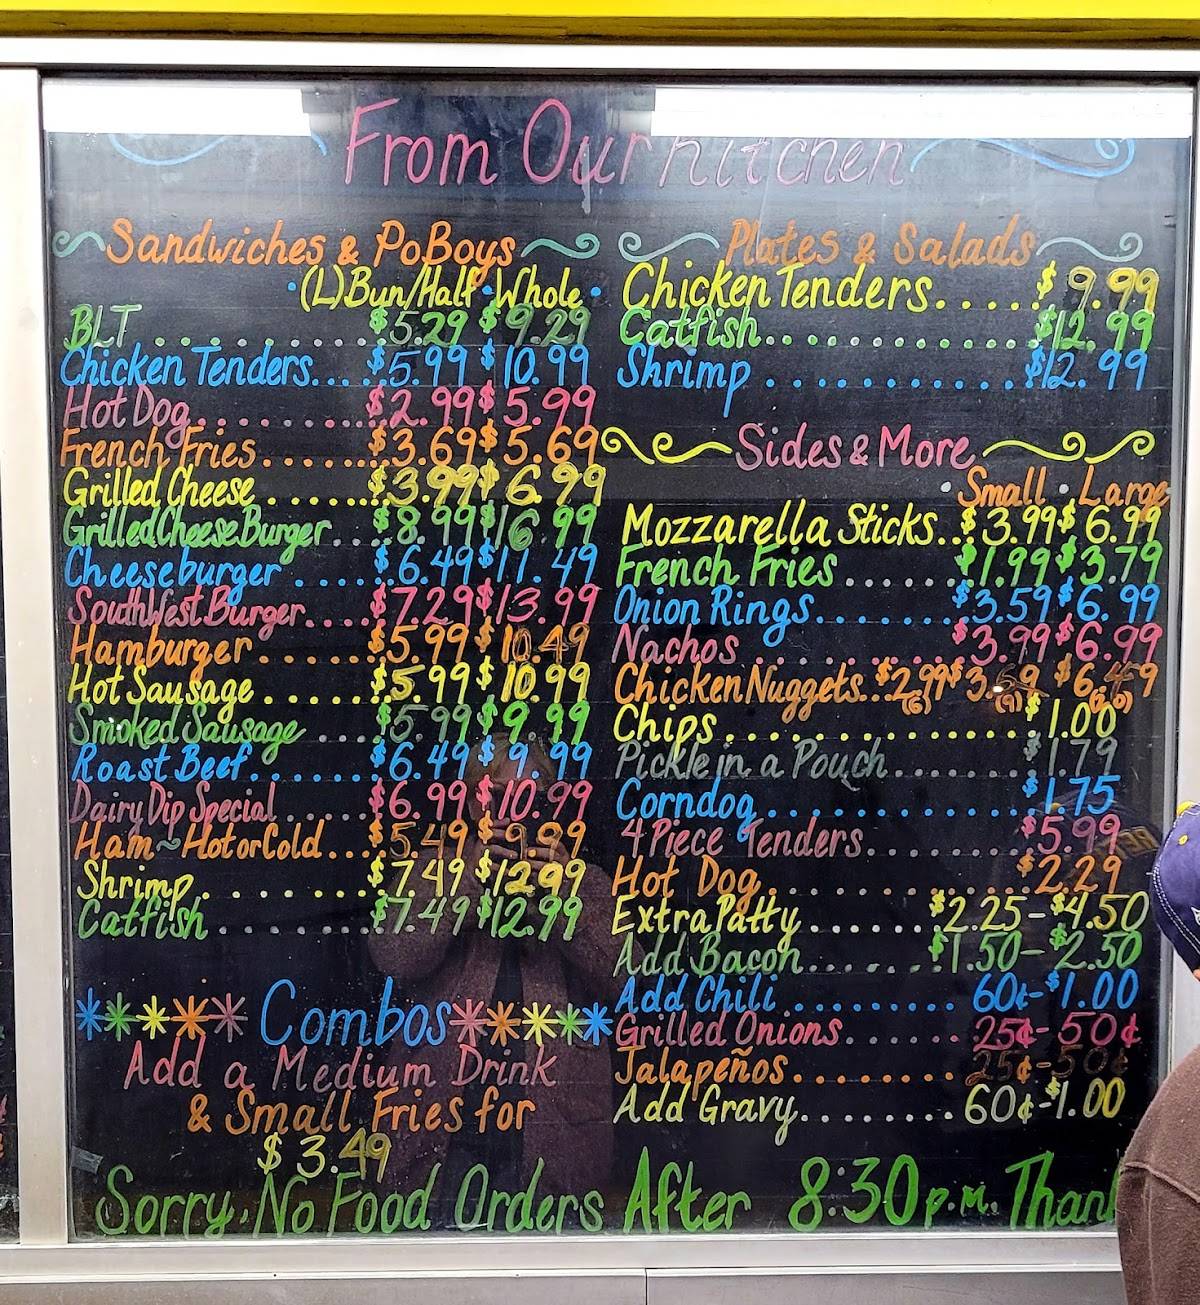 From Our Kitchen
Sandwiches & PoBoys
• (L) Bun/Half • Whole •
BLT . . . . . . . . . $5.29 $9.29
Chicken Tenders.... $5.99 $10.99
Hot Dog.......... $2.99 $5.99
French Fries....... $3.69 $5.69
Grilled Cheese....... $3.99 $6.99
Grilled Cheese Burger.... $8.99 $16.99
Cheeseburger...... $6.49 $11.49
SouthWest Burger..... $7.29 $13.99
Hamburger....... $5.99 $10.49
Hot Sausage...... $5.99 $10.99
Smoked Sausage.... $5.99 $9.99
Roast Beef....... $6.49 $9.99
Dairy Dip Special..... $6.99 $10.99
Ham~Hot or Cold... $5.49 $9.99
Shrimp......... $7.49 $12.99
Catfish......... $7.49 $12.99
Combos
Add a Medium Drink
& Small Fries for
$3.49
Plates & Salads
Chicken Tenders..... $9.99
Catfish............. $12.99
Shrimp............ $12.99
Sides & More
• Small • Large
Mozzarella Sticks... $3.99 $6.99
French Fries...... $1.99 $3.79
Onion Rings....... $3.59 $6.99
Nachos.......... $3.99 $6.99
Chicken Nuggets.. $2.99 $3.69 $6.49
(6) (9)
Chips.............. $1.00
Pickle in a Pouch...... $1.79
Corndog............ $1.75
4 Piece Tenders........ $5.99
Hot Dog............ $2.29
Extra Patty...... $2.25-$4.50
Add Bacon....... $1.50-$2.50
Add Chili........ 60¢-$1.00
Grilled Onions...... 25¢-50¢
Jalapeños........ 25¢-50¢
Add Gravy........ 60¢-$1.00
Sorry. No Food Orders After 8:30 p.m. Than